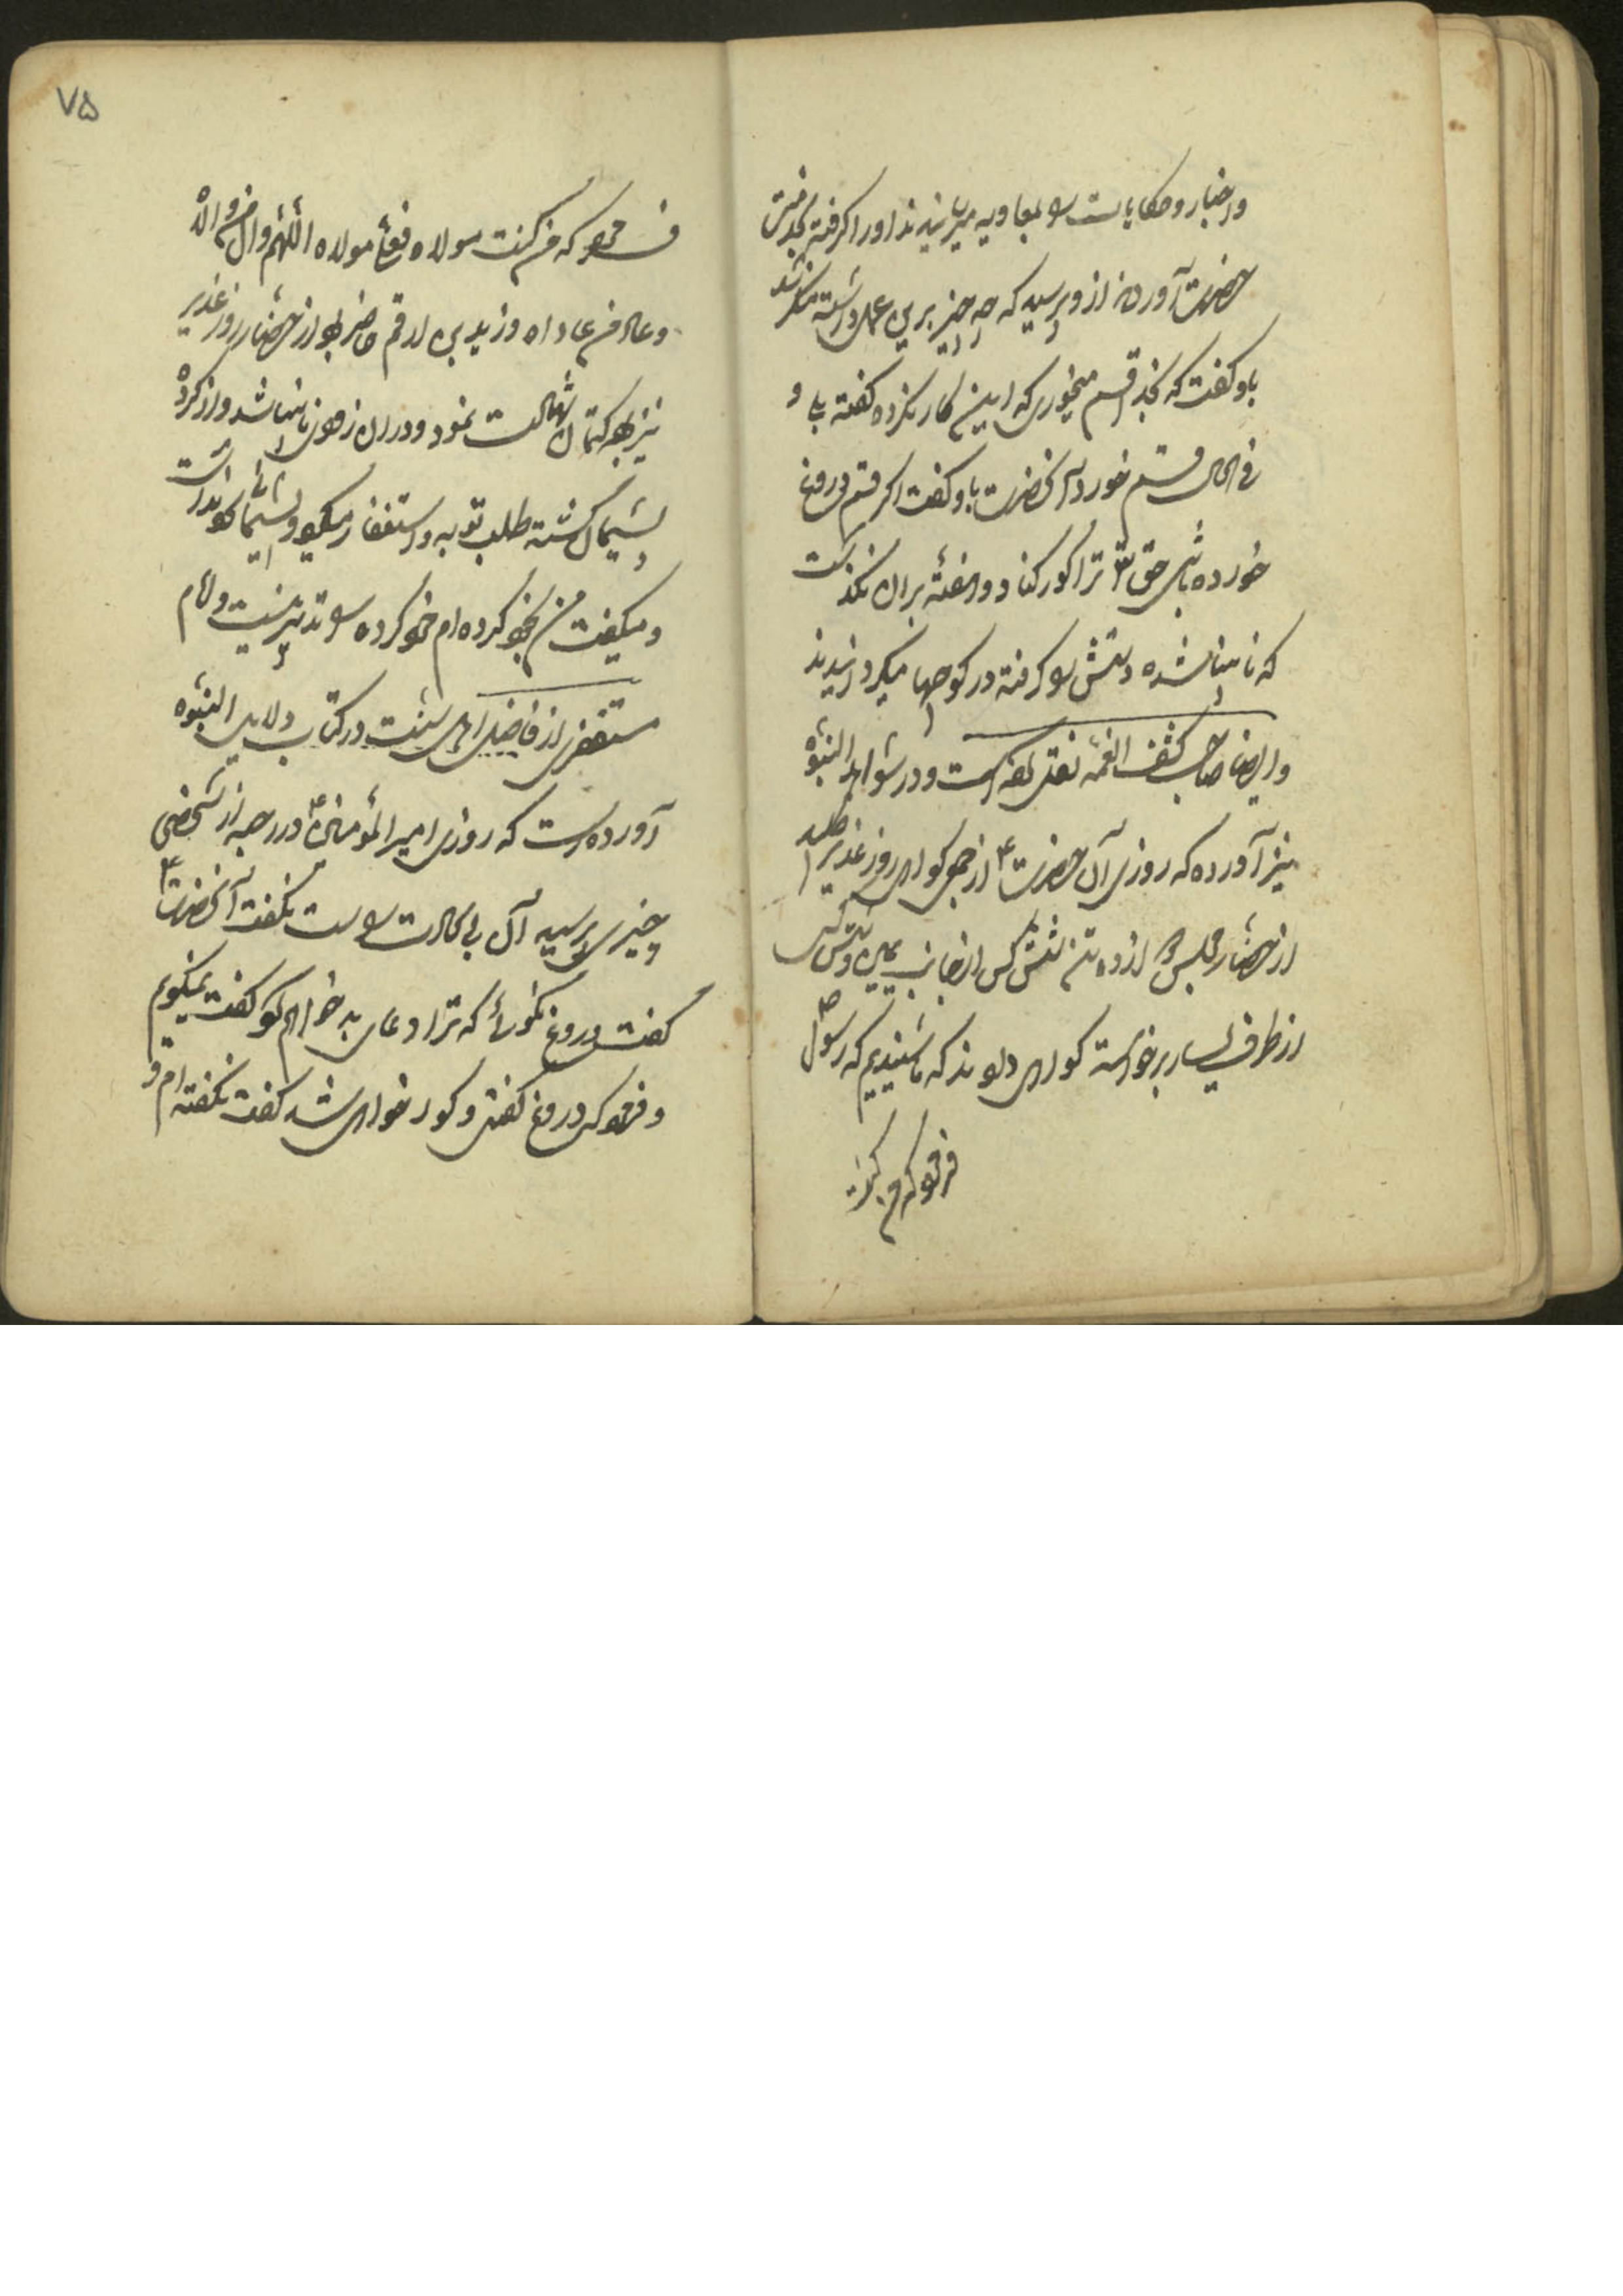 واخبار و حکایات را بمعاویه میرسانیدند او را گرفته بخدمت
حضرت آوردند از و پرسید که چه چیز برین عمل داشته منکر شد
باو گفت که بخدا قسم میخوری که این کار نکرده گفته بلی و
فی الحال قسم خورد آنحضرت باو گفت اگر قسم دروغ
خورده باشی حق تع ترا کور کناد و هفته بران نگذشت
که نابینا شده دستش را گرفته در کوچها میگردانیدند
و ایضا صاحب کشف الغمه نقل نموده است و در شواهد النبوه
نیز آورده که روزی آن حضرت ع از جمعی گواهی روز غدیر طلبید
از حضار مجلس دوازده تن شش کس از جانب یمین و شش کس
از طرف یسار برخواسته گواهی دادند که ما شنیدیم که رسول ص
فرمود که من کنت
فرمود که من کنت مولاه فعلی مولاه اللهم وال من والاه
وعاد من عاداه و زید بن ارقم حاضر بود از حضار روز غدیر
نیز بود کتمان شهادت نمود و در ان زودی نابینا شد و از کرده
پشیمان گشته طلب توبه و استغفار میکرد و پشیمانی سود نداشت
و میگفت من بخود کرده ام خود کرده را تدبیر نیست و امام
مستغفری از فاضل اهل سنت در کتاب دلایل النبوه
آورده است که روزی امیر المؤمنین ع در رحبه از شخصی
چیزی پرسید آن بی سعادت راست نگفت آنحضرت ع
گفت دروغ نگوئی که ترا دعای بد خواهم کرد گفت نمیگویم
و فرمود که دروغ گفتی و کور خواهی شد گفت نگفته ام و
۷۵